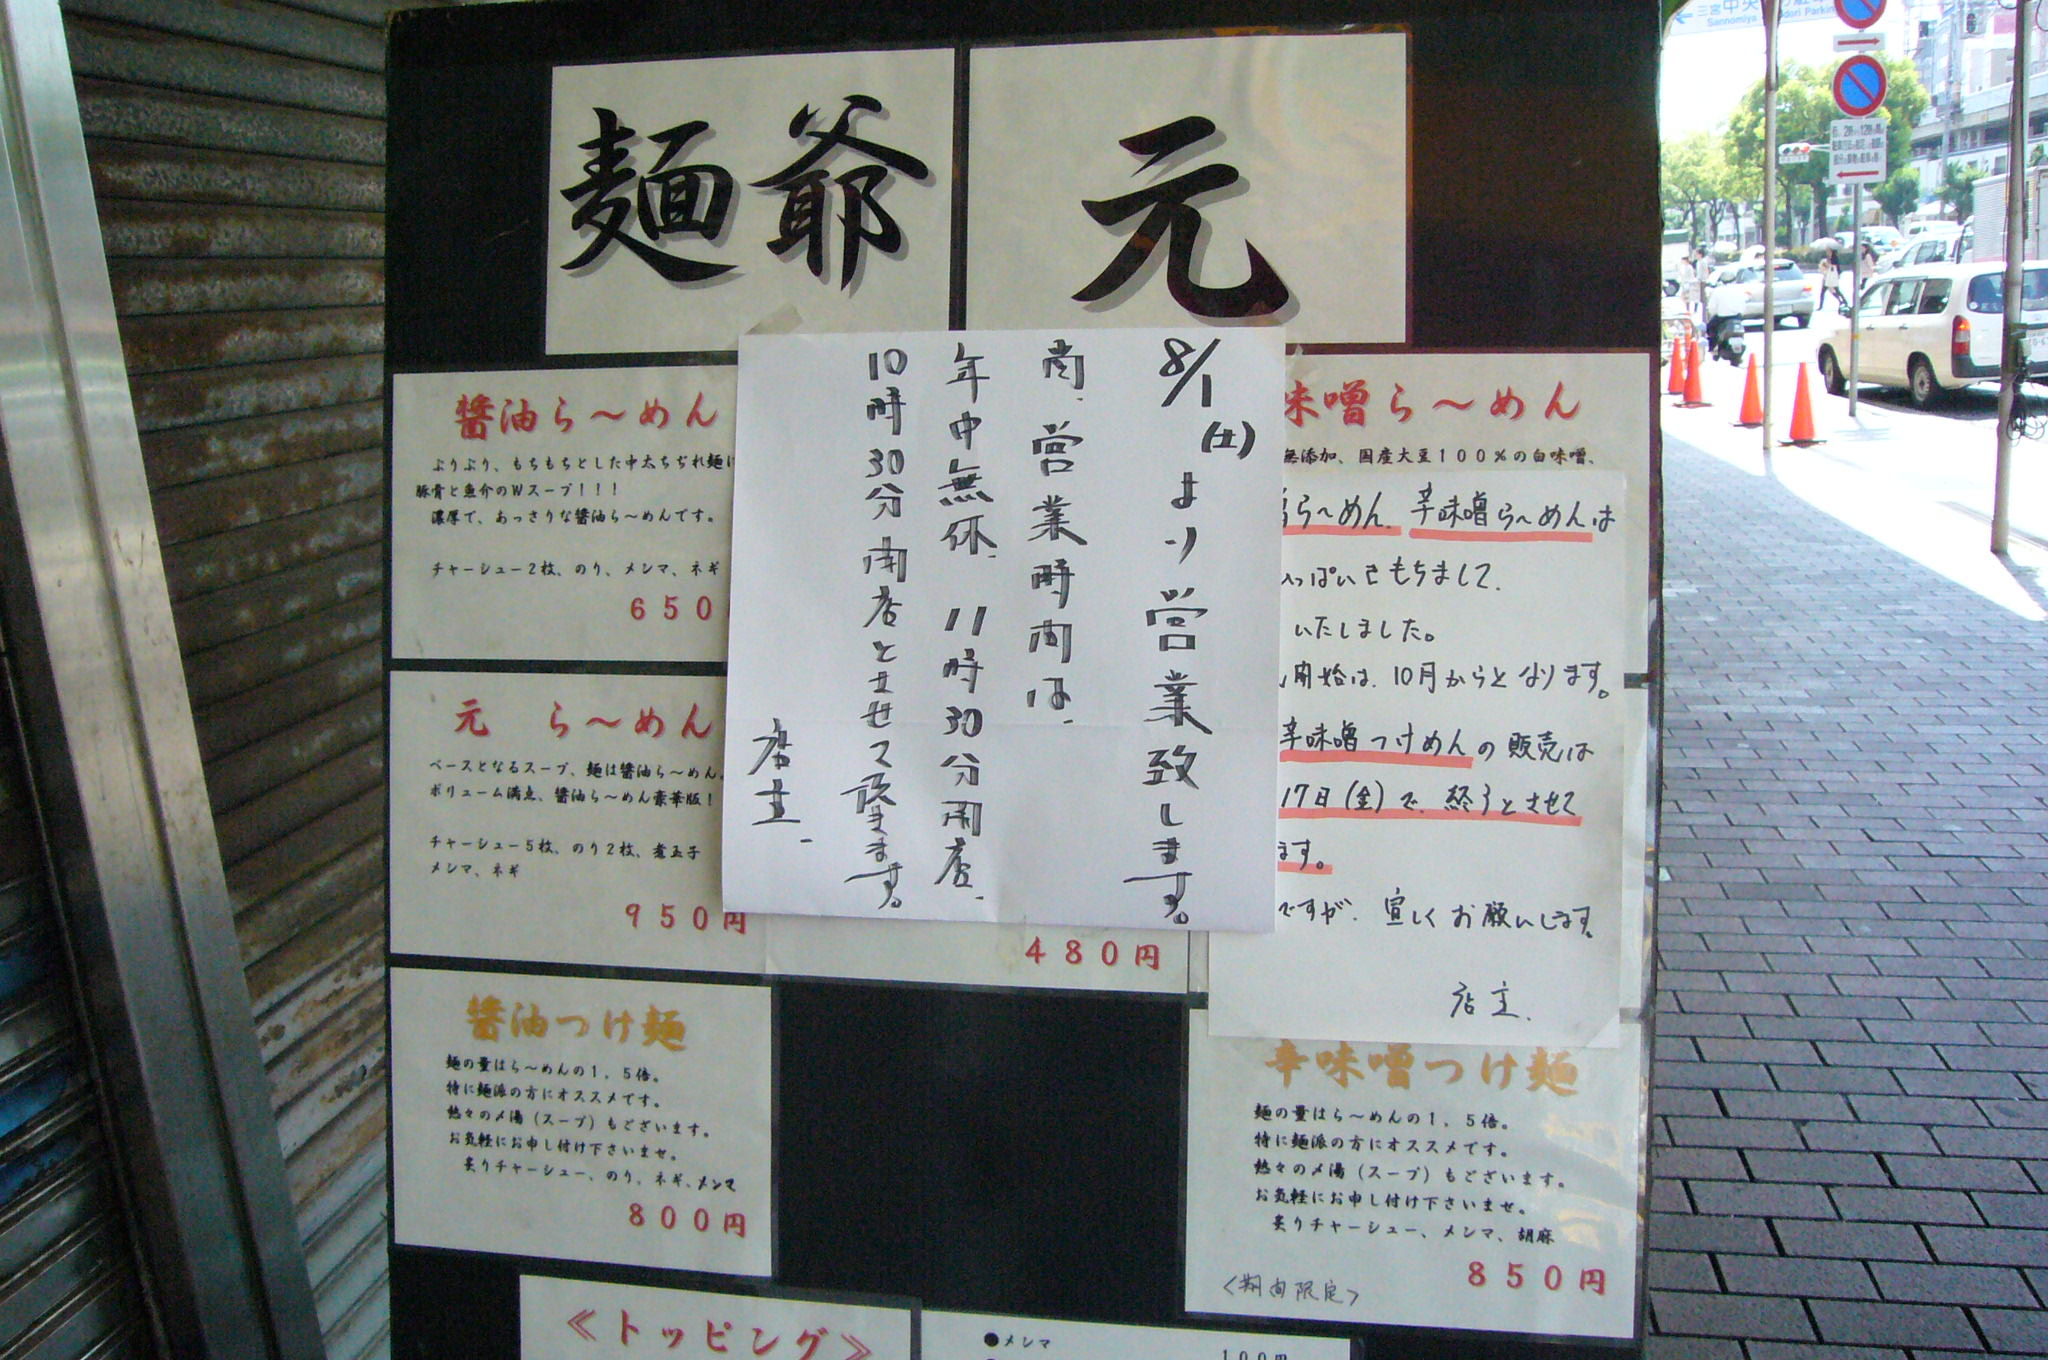 麺爺
元
8/1(土)より営業致します。
尚、営業時間は、
年中無休、11時30分開店、
10時30分閉店とさせて頂きます。
店主、
醤油ら〜めん
ぷりぷり、もちもちとした中太ちぢれ麺に
豚骨と魚介のWスープ!!!
濃厚で、あっさりな醤油ら〜めんです。
チャーシュー2枚、のり、メンマ、ネギ
650
元 ら〜めん
ベースとなるスープ、麺は醤油ら〜めん。
ボリューム満点、醤油ら〜めん豪華版!
チャーシュー5枚、のり2枚、煮玉子
メンマ、ネギ
950円
480円
醤油つけ麺
麺の量はら〜めんの1.5倍。
特に麺派の方にオススメです。
熱々の〆湯(スープ)もございます。
お気軽にお申し付け下さいませ。
炙りチャーシュー、のり、ネギ、メンマ
800円
味噌ら〜めん
無添加、国産大豆100%の白味噌、
ら〜めん、辛味噌ら〜めんは
いっぱいをもちまして、
いたしました。
開始は、10月からとなります。
辛味噌つけめんの販売は
17日(金)で、終了とさせて
ます。
ですが、宜しくお願いします。
店主、
辛味噌つけ麺
麺の量はら〜めんの1.5倍。
特に麺派の方にオススメです。
熱々の〆湯(スープ)もございます。
お気軽にお申し付け下さいませ。
炙りチャーシュー、メンマ、胡麻
850円
<期間限定>
≪トッピング≫
●メンマ
100円
三宮中央
Sannomiya
Parking